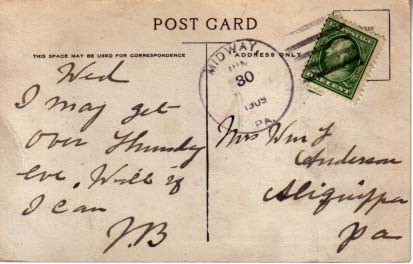 POST CARD
THIS SPACE MAY BE USED FOR CORRESPONDENCE
ADDRESS ONLY
MIDWAY,
30
1909
PA.
CENT
Wed
I may get
over Thursday
eve. Will if
I can
J.B
Mrs Wm J
Anderson
Aliquippa
Pa